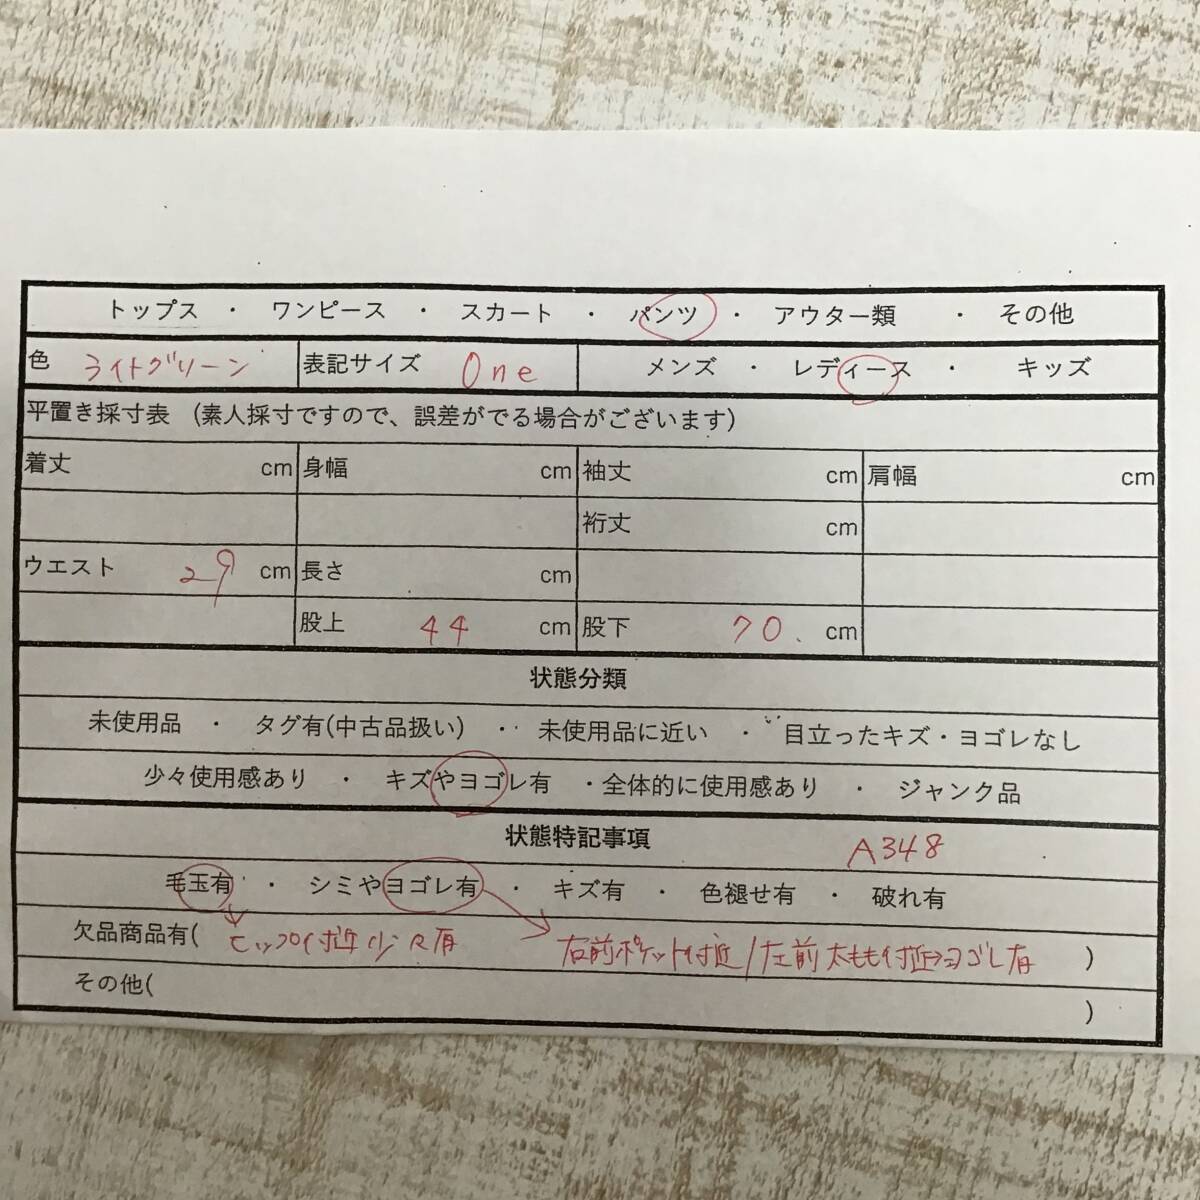 トップス ・ ワンピース ・ スカート ・ パンツ ・ アウター類 ・ その他
色 ライトグリーン 表記サイズ One メンズ ・ レディース ・ キッズ
平置き採寸表 (素人採寸ですので、誤差がでる場合がございます)
着丈 cm 身幅 cm 袖丈 cm 肩幅 cm
裄丈 cm
ウエスト 29 cm 長さ cm
股上 44 cm 股下 70. cm
状態分類
未使用品 ・ タグ有(中古品扱い) ・ 未使用品に近い ・ 目立ったキズ・ヨゴレなし
少々使用感あり ・ キズやヨゴレ有 ・全体的に使用感あり ・ ジャンク品
状態特記事項 A348
毛玉有 ・ シミやヨゴレ有 ・ キズ有 ・ 色褪せ有 ・ 破れ有
欠品商品有( ヒップ付近少々有 右前ポケット付近/左前太もも付近→ヨゴレ有 )
その他( )